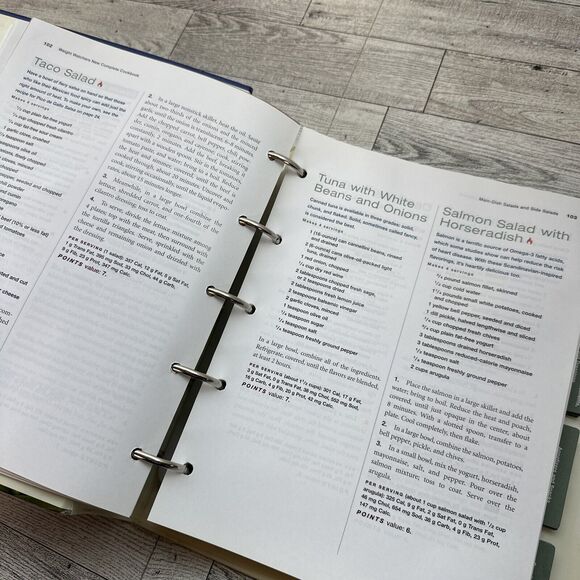 102 Weight Watchers New Complete Cookbook
Taco Salad
Have a bowl of fiery salsa on hand so that those
who like their Mexican food
right amount of heat. To make your own, see the
recipe for Pico de Gallo Salsa on page
Makes
cup plain fat-free yogurt
cup chopped fresh cilantro
cup fat-free sour cream
garlic clove, crushed
teaspoon salt
finely chopped
chopped
chili powder
oregano
beef (10% or less fat)
tomatoes
water
cheese
2. In a large nonstick skillet, heat the oil. Sauté
about two-thirds of the onions and the minced
garlic until the onion is translucent,
Add the chopped carrot, bell pepper, chili pow-
der, cumin, oregano, and
constantly, 1 minute. Add the beef, breaking it
apart with a wooden spoon. Stir in the beans,
tomatoes, and water; bring to a boil. Reduce
heat and simmer, covered, until the
cooked through, about 20 minutes. Uncover and
cook, stirring occasionally, until liquid
rates, about 15 minutes longer.
3. Meanwhile, in a large bowl, combine the
lettuce, shredded carrot, and one fourth of the
cilantro dressing; toss to coat.
4. To serve, divide the lettuce mixture among
the turkey mixture. Serve, sprinkled with
the cheese and remaining onion, and drizzled with
remaining dressing.
PER SERVING (1 salad): 327 Cal, 12 g Fat, 5 g Sat Fat,
1 g Trans Fat, 38 mg Chol,
POINTS value: 7.
Main-Dish Salads and Side Salads 103
Tuna with White
Beans and Onions
Canned tuna is available in three styles: solid,
chunk, and flaked. Solid, sometimes called fancy,
is considered the best.
Makes 4 servings
1 (16-ounce) can cannellini beans, rinsed
and drained
2 (6-ounce) cans olive-oil-packed light
tuna, drained
1 red onion, chopped
1/4 cup dry red wine
2 tablespoons chopped fresh sage,
or 2 teaspoons dried
2 tablespoons fresh lemon juice
2 teaspoons balsamic vinegar
2 garlic cloves, minced
1 teaspoon olive oil
teaspoon sugar
teaspoon salt
teaspoon freshly ground pepper
In a large bowl, combine all of the ingredients.
Refrigerate, covered, until the flavors are blended,
at least 2 hours.
PER SERVING (about 1 1/2 cups): 301 Cal, 17 g Fat,
3 g Sat Fat, 0 g Trans Fat, 38 mg Chol, 552 mg Sod,
16 g Carb, 4 g Fib, 20 g Prot, 42 mg Calc.
POINTS value: 7.
Salmon Salad with
Horseradish
Salmon is a terrific source of omega-3 fatty acids,
which some studies show can help reduce the risk
of heart disease. With these Scandinavian-inspired
flavorings, it's heartily delicious too.
Makes 4 servings
3/4 pound salmon fillet, skinned
1/2 cup cold water
1 1/4 pounds small white potatoes, cooked
1 yellow bell pepper, seeded and diced
1 dill pickle, halved lengthwise and sliced
1/4 cup chopped fresh chives
3/4 cup plain fat-free yogurt
3 tablespoons drained horseradish
3 tablespoons reduced-calorie mayonnaise
1/2 teaspoon salt
1/4 teaspoon freshly ground pepper
2 cups arugula
1. Place the salmon in a large skillet and add the
water; bring to boil. Reduce the heat and poach,
covered, until just opaque in the center, about
8 minutes. With a slotted spoon, transfer to a
plate. Cool completely, then flake.
2. In a large bowl, combine the salmon, potatoes,
bell pepper, pickle, and chives.
3. In a small bowl, mix the yogurt, horseradish,
mayonnaise, salt, and pepper. Pour over the
salmon mixture; toss to coat. Serve over the
arugula.
PER SERVING (about 1 cup salmon salad with 1/2 cup
arugula): 325 Cal, 9 g Fat, 2 g Sat Fat, 0 g Trans Fat,
46 mg Chol, 654 mg Sod, 38 g Carb, 4 g Fib, 23 g Prot,
147 mg Calc.
POINTS value: 6.